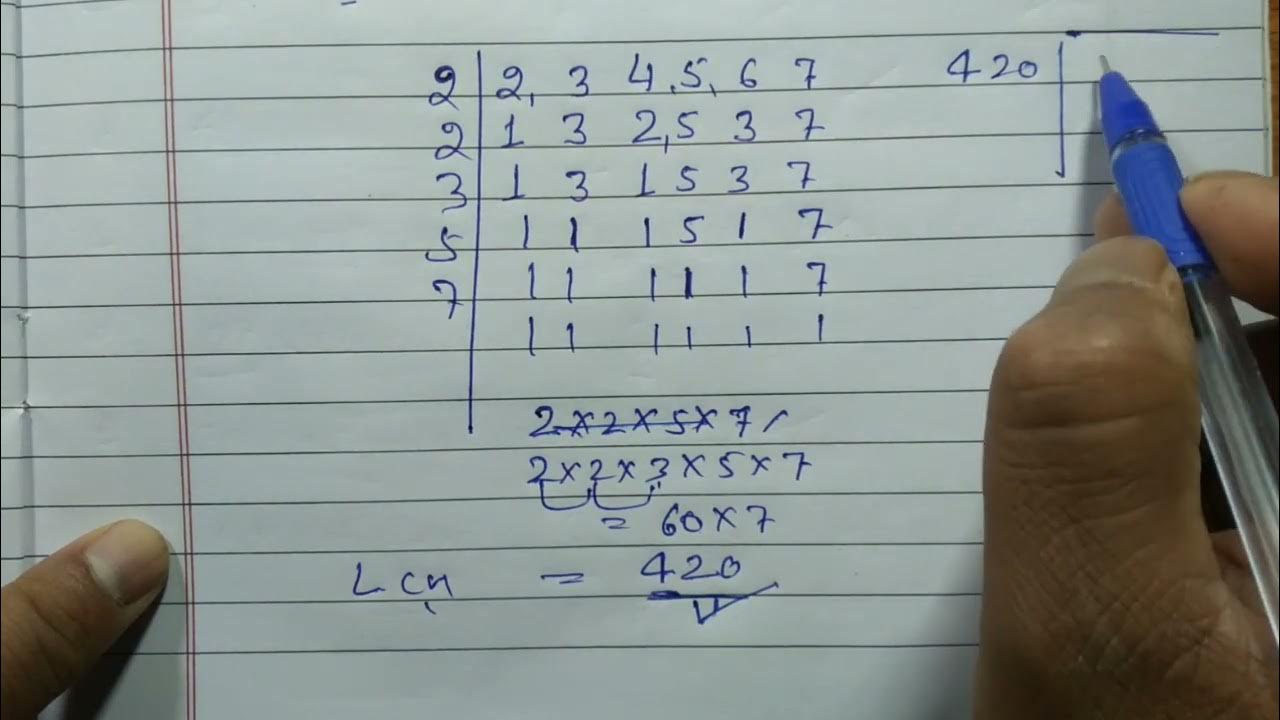 2 | 2, 3 4, 5, 6 7 420
2 | 1 3 2, 5 3 7
3 | 1 3 1 5 3 7
5 | 1 1 1 5 1 7
7 | 1 1 1 1 1 7
1 1 1 1 1 1
2×2×5×7
2×2×3×5×7
= 60×7
LCM = 420